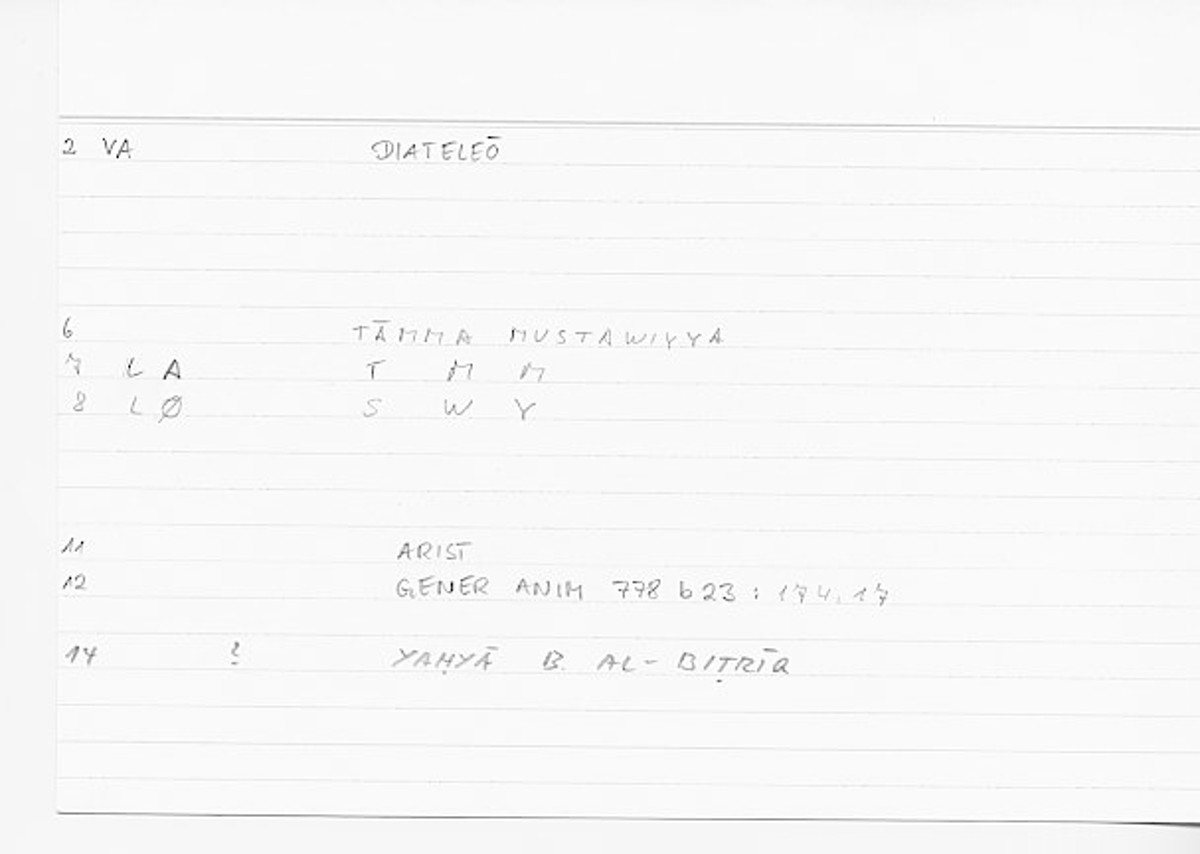 2 VA DIATELEŌ
6 TĀMMA MUSTAWIYYA
7 L A T M M
8 L Ø S W Y
11 ARIST
12 GENER ANIM 778 b 23 : 174,17
14 ? YAḤYĀ B. AL-BIṬRĪQ